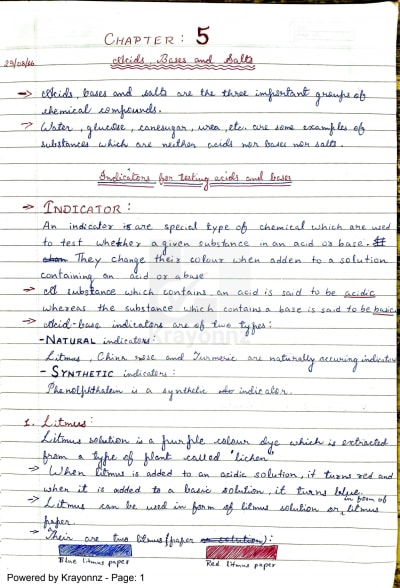 CHAPTER : 5
29/08/
Acids, Bases and Salts
→ Acids, bases and salts are the three important groups of
chemical compounds.
→ Water, glucose, canesugar, urea, etc. are some examples of
substances which are neither acids nor bases nor salts.
Indicators for testing acids and bases
→ INDICATOR :
An indicator is are special type of chemical which are used
to test whether a given substance in an acid or base.
They change their colour when adden to a solution
containing an acid or a base
→ A substance which contains an acid is said to be acidic
whereas the substance which contains a base is said to be basic
→ Acid-base indicators are of two types:
- NATURAL indicators:
Litmus, China rose and Turmeric are naturally occuring indicators
- SYNTHETIC indicators:
Phenolphthalein is a synthetic indicator.
Krayonnz
1. Litmus:
Litmus solution is a purple colour dye which is extracted
from a type of plant called "lichen"
→ When litmus is added to an acidic solution, it turns red and
when it is added to a basic solution, it turns blue.
→ Litmus can be used in form of litmus solution or in form of litmus
paper.
→ Their are two litmus (paper solution):
Blue litmus paper Red litmus paper
Powered by Krayonnz - Page: 1